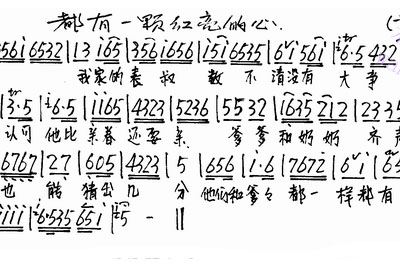 都有一颗红亮的心. (
56i 6532 | 13 i65 | 356i656 | i5i 6535 | 6 i 56i | 6·5 432
我家的表叔 数 不 清没有 大事
3·5 | 6·5 | ii65 | 4323 | 5236 | 5532 | i635 212 | 2335
认可 他比亲眷还要亲 爹爹和奶奶 齐声
6767 | 27 | 605 | 4323 | 5 | 656 | i·6 | 7672 | 6 i | 65
也 能 猜出几 分 他们和爹々 都一 样都有
iiii | 6·535 65i | 5 - ||